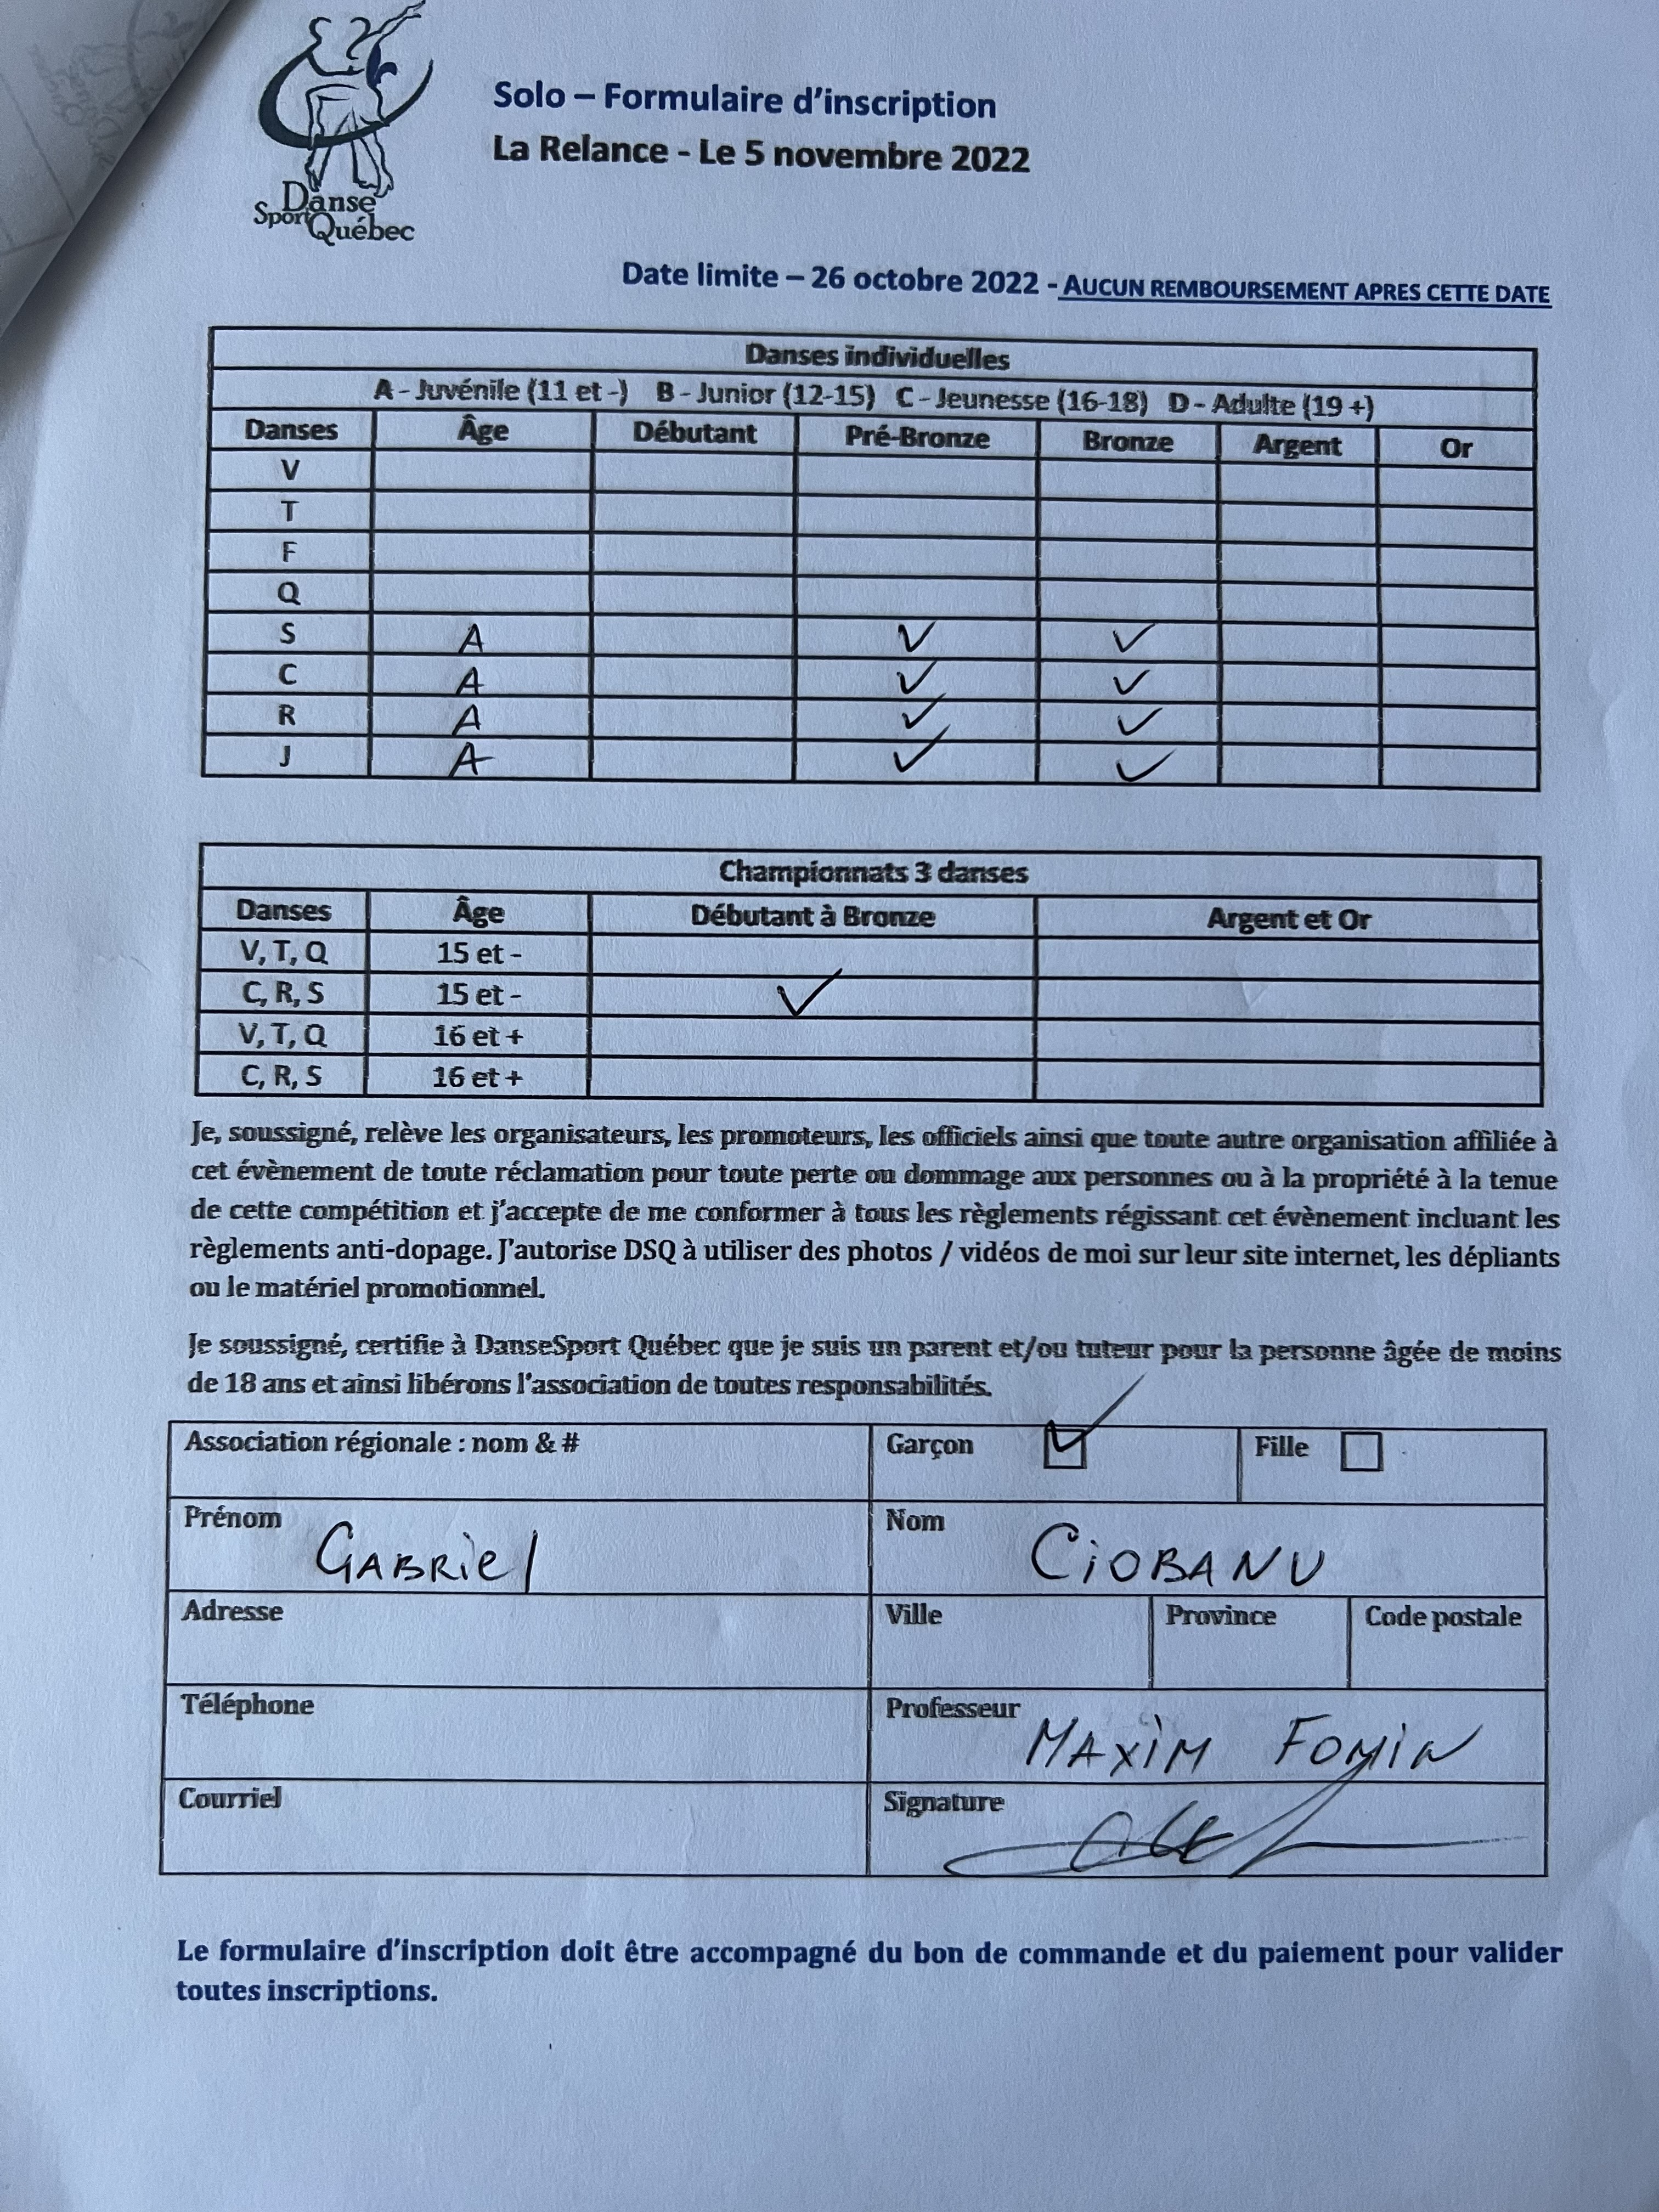 Danse
Sport Québec
Solo – Formulaire d'inscription
La Relance - Le 5 novembre 2022
Date limite – 26 octobre 2022 - AUCUN REMBOURSEMENT APRES CETTE DATE
Danses individuelles
A - Juvénile (11 et -) B - Junior (12-15) C - Jeunesse (16-18) D - Adulte (19 +)
Danses Âge Débutant Pré-Bronze Bronze Argent Or
V
T
F
Q
S A ✓ ✓
C A ✓ ✓
R A ✓ ✓
J A ✓ ✓
Championnats 3 danses
Danses Âge Débutant à Bronze Argent et Or
V, T, Q 15 et -
C, R, S 15 et - ✓
V, T, Q 16 et +
C, R, S 16 et +
Je, soussigné, relève les organisateurs, les promoteurs, les officiels ainsi que toute autre organisation affiliée à
cet évènement de toute réclamation pour toute perte ou dommage aux personnes ou à la propriété à la tenue
de cette compétition et j'accepte de me conformer à tous les règlements régissant cet évènement incluant les
règlements anti-dopage. J'autorise DSQ à utiliser des photos / vidéos de moi sur leur site internet, les dépliants
ou le matériel promotionnel.
Je soussigné, certifie à DanseSport Québec que je suis un parent et/ou tuteur pour la personne âgée de moins
de 18 ans et ainsi libérons l'association de toutes responsabilités.
Association régionale : nom & # Garçon ✓ Fille
Prénom GABRiel Nom CiOBANU
Adresse Ville Province Code postale
Téléphone Professeur MAXiM FOMiN
Courriel Signature
Le formulaire d'inscription doit être accompagné du bon de commande et du paiement pour valider
toutes inscriptions.